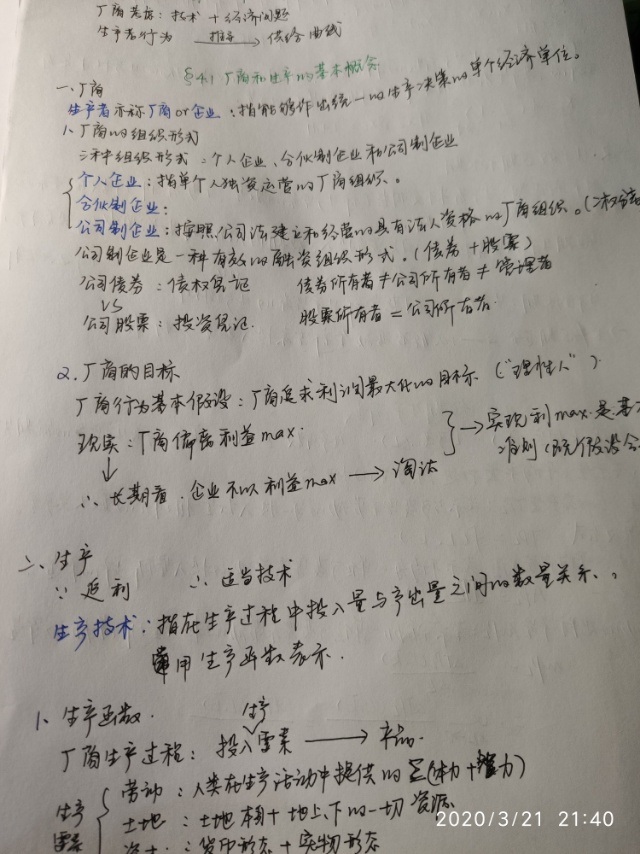 厂商考虑:技术+经济问题
生产者行为 推导→ 供给曲线
§4.1 厂商和生产的基本概念
一、厂商
生产者亦称厂商or企业:指能够作出统一的生产决策的单个经济单位。
1、厂商的组织形式
三种组织形式:个人企业、合伙制企业和公司制企业
个人企业:指单个人独资运营的厂商组织。
合伙制企业:
公司制企业:按照公司法建立和经营的具有法人资格的厂商组织。(
公司制企业是一种有效的融资组织形式。(债券+股票)
公司债券:债权凭证 债券所有者≠公司所有者≠管理者
VS
公司股票:投资凭证. 股票所有者=公司所有者.
2.厂商的目标
厂商行为基本假设:厂商追求利润最大化的目标 ("理性人")
现实:厂商偏离利益max. }→实现利max.是基
↓ 准则(
∴长期看.企业不以利益max → 淘汰
二、生产
∵逐利 ∴适当技术
生产技术:指在生产过程中投入量与产出量之间的数量关系.,
用生产函数表示.
1、生产函数.
生产
厂商生产过程:投入要素 → 产品.
生产要素
劳动:人类在生产活动中提供的Σ(体力+智力)
土地:土地本身+地上、下的一切资源
资本:货币形态+实物形态
2020/3/21 21:40